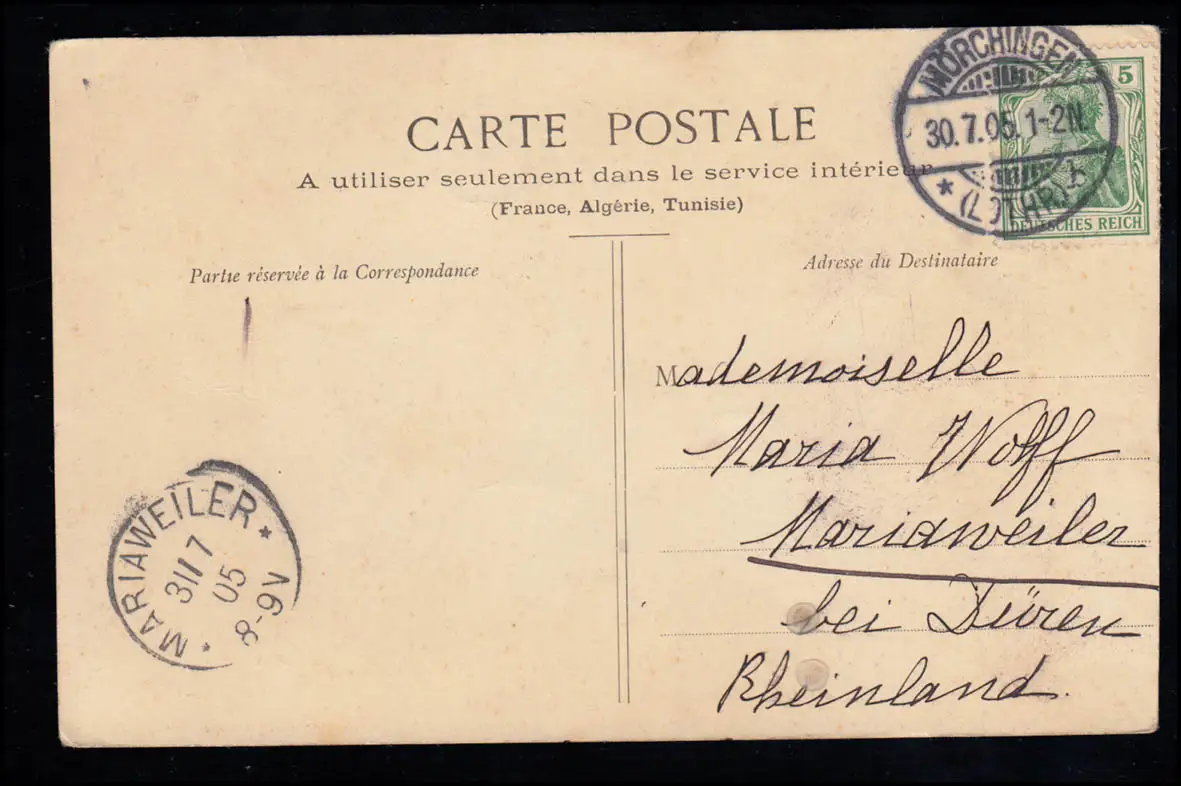 MÖRCHINGEN
30.7.05. 1-2N.
* (LOTHR.) b
5
DEUTSCHES REICH
CARTE POSTALE
A utiliser seulement dans le service intérieur
(France, Algérie, Tunisie)
Partie réservée à la Correspondance
Adresse du Destinataire
Mademoiselle
Maria Wolff
Mariaweiler
bei Düren
Rheinland.
* MARIAWEILER *
31 7
05
8-9V